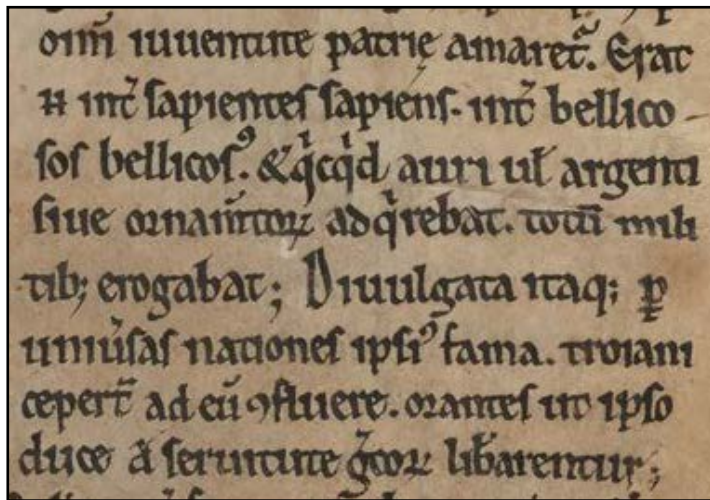 oīm iuuentute patrię amaret᷑. Erat
n̄ int̄ sapientes sapiens. int̄ bellico-
sos bellicosꝰ. & qͥcqͥd auri ul̄ argenti
siue ornam̄toꝝ adqͥrebat. totū mili
tib; erogabat; Diuulgata itaq; ꝑ
uniu̾sas nationes ipsiꝰ fama. troiani
ceper̄t ad eū ꝯfluere. orantes ut ipso
duce a seruitute g̃coꝝ lib̄arentur;